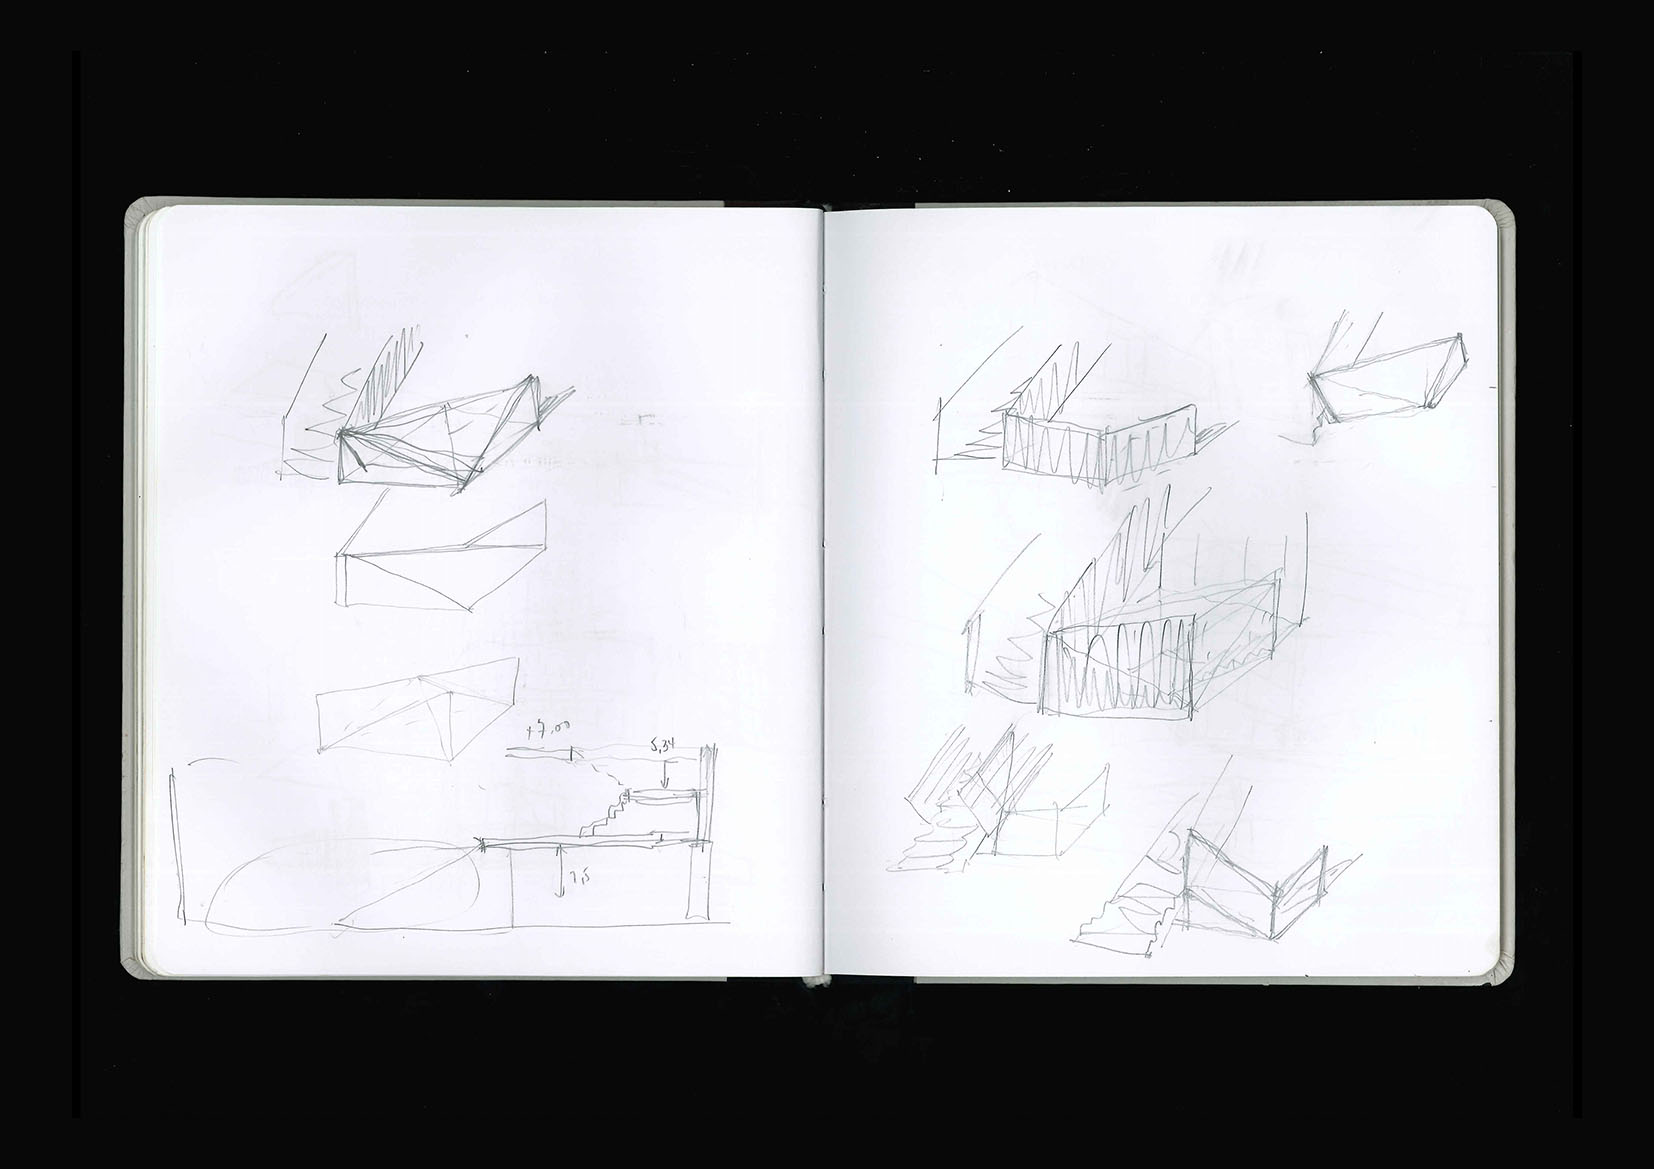 +7,00
5,34
7,5